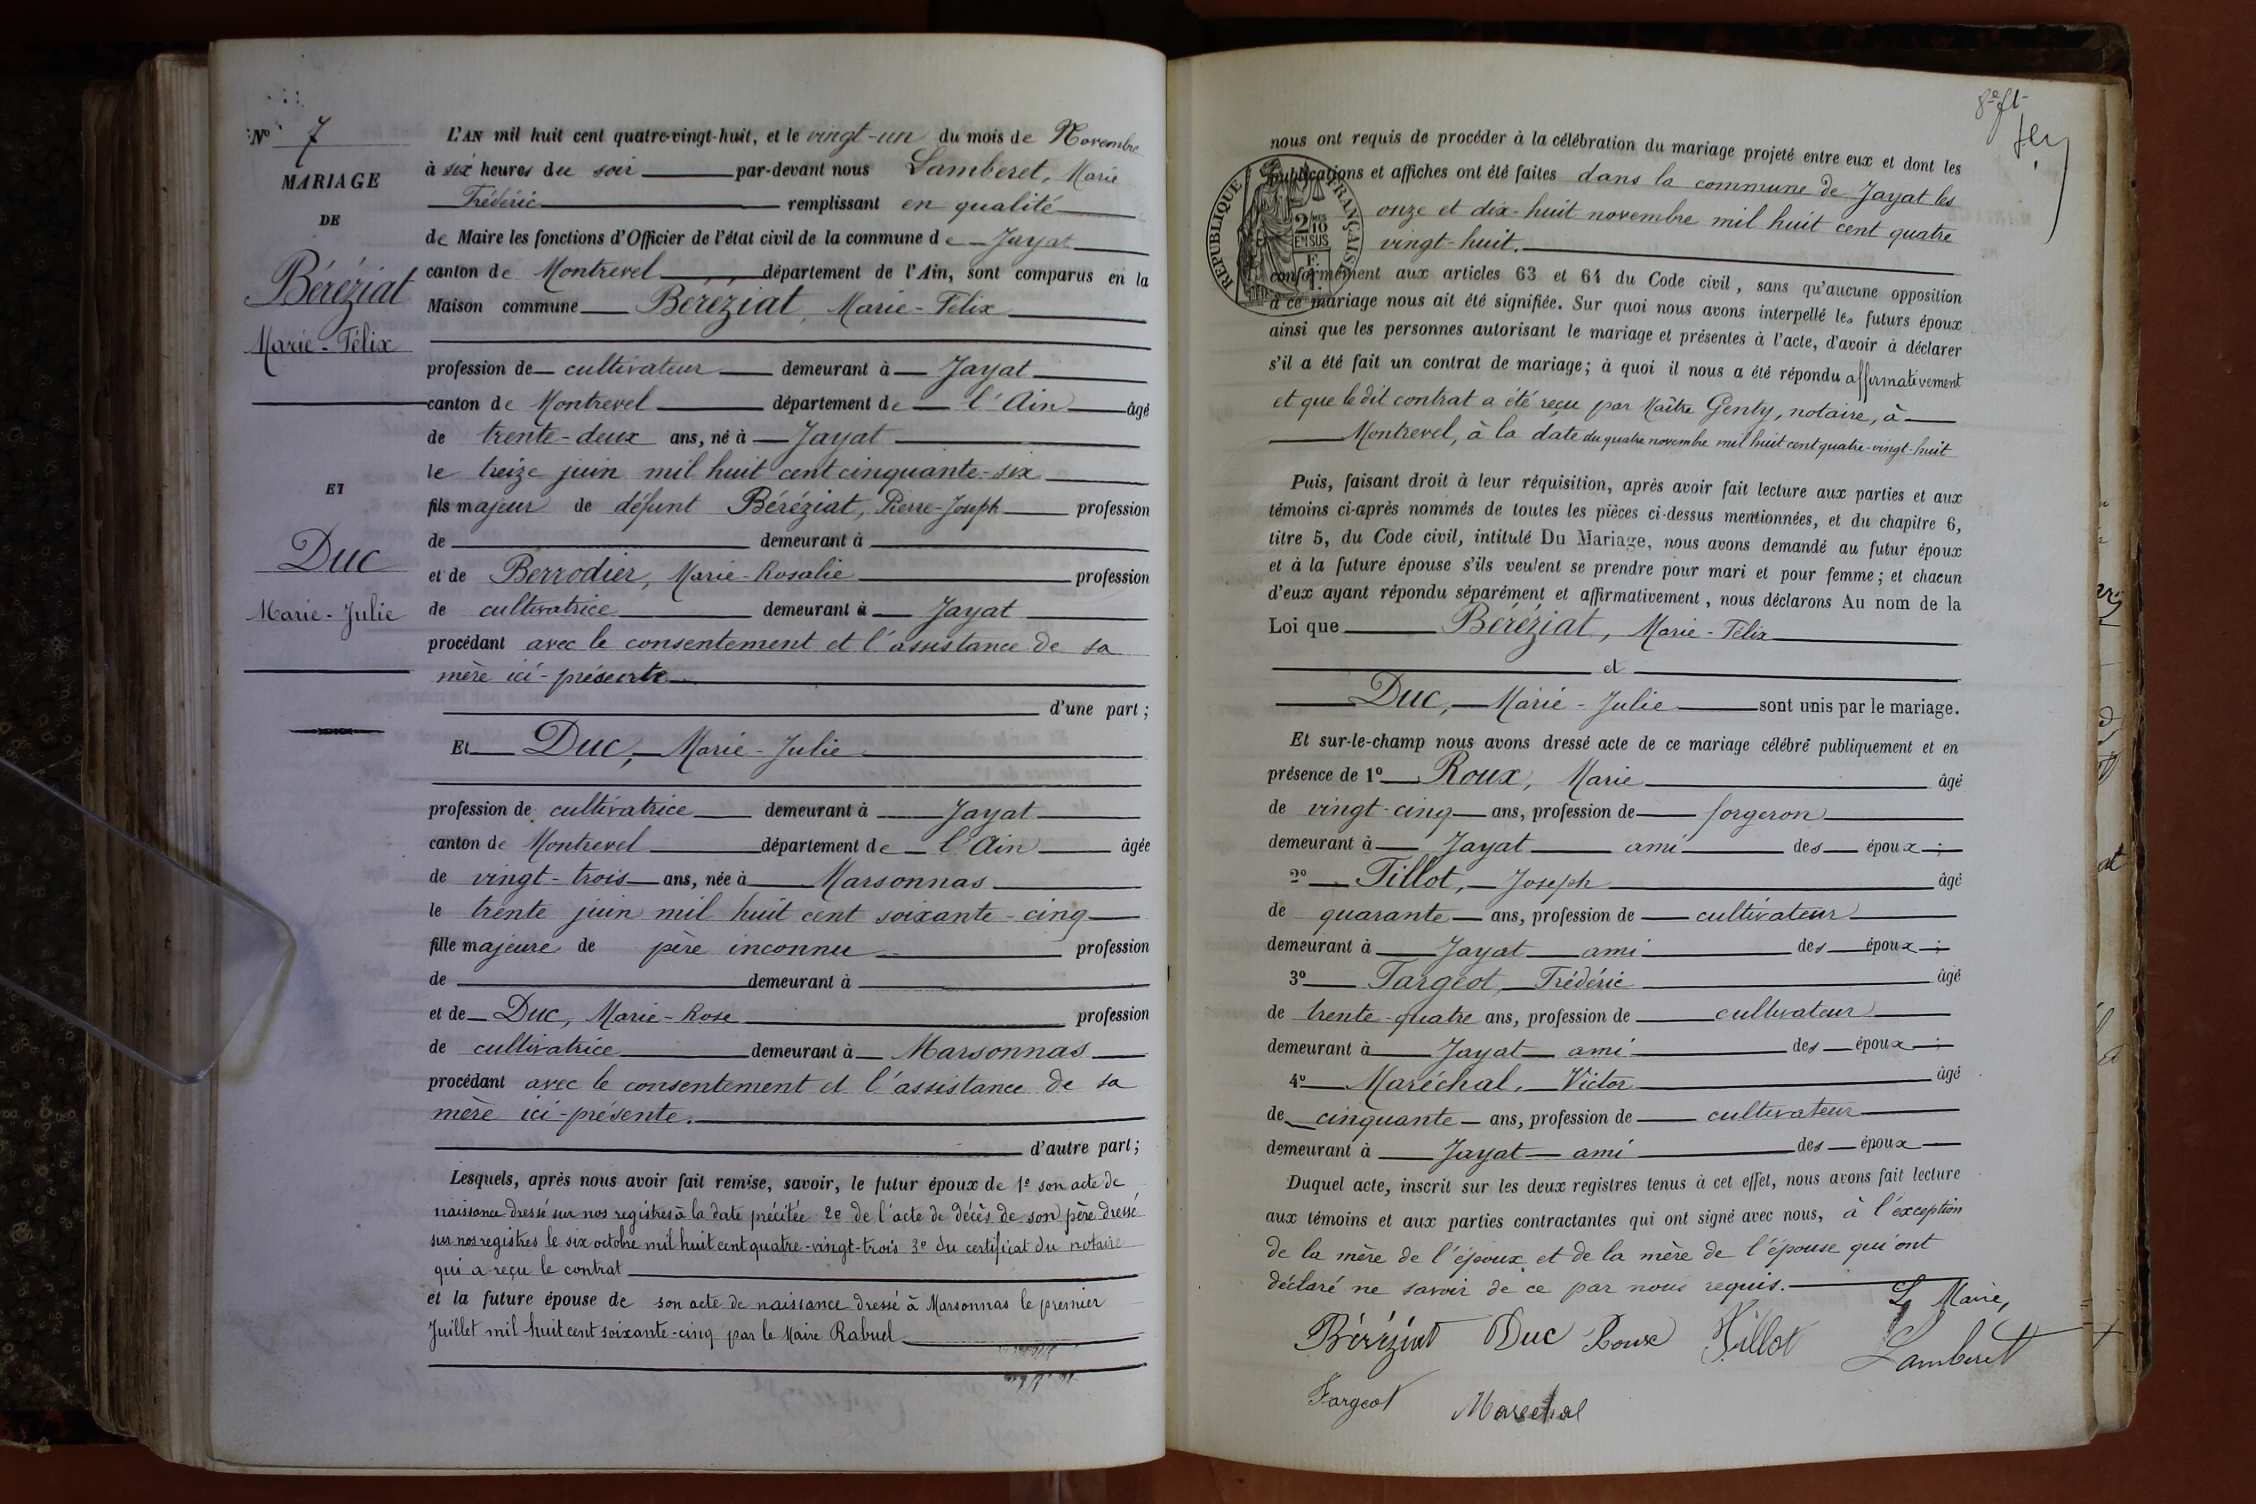 N° 7
MARIAGE
DE
Béréziat
Marie-Félix
ET
Duc
Marie-Julie
L'AN mil huit cent quatre-vingt-huit, et le vingt-un du mois de Novembre
à six heures du soir par-devant nous Lamberet, Marie
Frédéric remplissant en qualité
de Maire les fonctions d'Officier de l'état civil de la commune de Jayat
canton de Montrevel département de l'Ain, sont comparus en la
Maison commune Béréziat, Marie-Félix
profession de cultivateur demeurant à Jayat
canton de Montrevel département de l'Ain âgé
de trente-deux ans, né à Jayat
le treize juin mil huit cent cinquante-six
fils majeur de défunt Béréziat, Pierre-Joseph profession
de demeurant à
et de Berrodier, Marie-Rosalie profession
de cultivatrice demeurant à Jayat
procédant avec le consentement et l'assistance de sa
mère ici-présente
d'une part;
Et Duc, Marie-Julie
profession de cultivatrice demeurant à Jayat
canton de Montrevel département de l'Ain âgée
de vingt-trois ans, née à Marsonnas
le trente juin mil huit cent soixante-cinq
fille majeure de père inconnu profession
de demeurant à
et de Duc, Marie-Rose profession
de cultivatrice demeurant à Marsonnas
procédant avec le consentement et l'assistance de sa
mère ici-présente.
d'autre part;
Lesquels, après nous avoir fait remise, savoir, le futur époux de 1° son acte de
naissance dressé sur nos registres à la date précitée 2° de l'acte de décès de son père dressé
sur nos registres le six octobre mil huit cent quatre-vingt-trois 3° du certificat du notaire
qui a reçu le contrat
et la future épouse de son acte de naissance dressé à Marsonnas le premier
Juillet mil huit cent soixante-cinq par le Maire Rabuel
nous ont requis de procéder à la célébration du mariage projeté entre eux et dont les
publications et affiches ont été faites dans la commune de Jayat les
onze et dix-huit novembre mil huit cent quatre
vingt-huit.
REPUBLIQUE FRANÇAISE
2/10
EN SUS
conformément aux articles 63 et 64 du Code civil, sans qu'aucune opposition
à ce mariage nous ait été signifiée. Sur quoi nous avons interpellé les futurs époux
ainsi que les personnes autorisant le mariage et présentes à l'acte, d'avoir à déclarer
s'il a été fait un contrat de mariage; à quoi il nous a été répondu affirmativement
et que le dit contrat a été reçu par Maître Genty, notaire, à
Montrevel, à la date du quatre novembre mil huit cent quatre-vingt-huit
Puis, faisant droit à leur réquisition, après avoir fait lecture aux parties et aux
témoins ci-après nommés de toutes les pièces ci-dessus mentionnées, et du chapitre 6,
titre 5, du Code civil, intitulé Du Mariage, nous avons demandé au futur époux
et à la future épouse s'ils veulent se prendre pour mari et pour femme; et chacun
d'eux ayant répondu séparément et affirmativement, nous déclarons Au nom de la
Loi que Béréziat, Marie-Félix
et
Duc, Marie-Julie sont unis par le mariage.
Et sur-le-champ nous avons dressé acte de ce mariage célébré publiquement et en
présence de 1° Roux, Marie âgé
de vingt-cinq ans, profession de forgeron
demeurant à Jayat ami des époux;
2° Tillot, Joseph âgé
de quarante ans, profession de cultivateur
demeurant à Jayat ami des époux;
3° Fargeot, Frédéric âgé
de trente-quatre ans, profession de cultivateur
demeurant à Jayat ami des époux;
4° Maréchal, Victor âgé
de cinquante ans, profession de cultivateur
demeurant à Jayat ami des époux
Duquel acte, inscrit sur les deux registres tenus à cet effet, nous avons fait lecture
aux témoins et aux parties contractantes qui ont signé avec nous, à l'exception
de la mère de l'époux et de la mère de l'épouse qui ont
déclaré ne savoir de ce par nous requis.
Le Maire,
Béréziat Duc Roux Tillot Lamberet
Fargeot Marechal